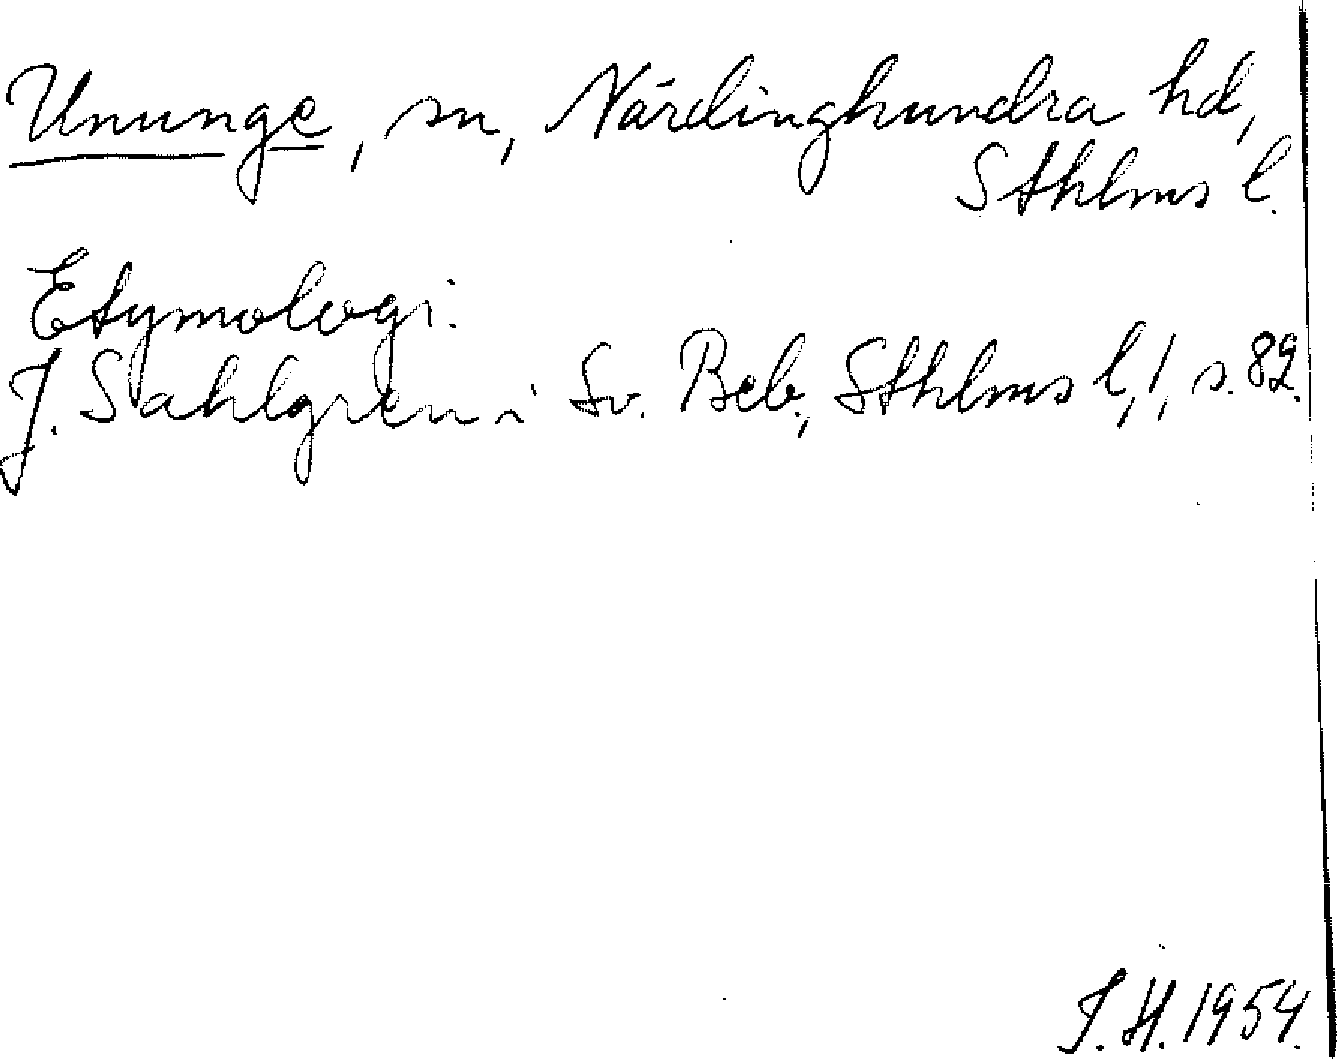 Ununge, sn, Närdinghundra hd,
Sthlms l.
Etymologi:
J. Sahlgren i Sv. Beb., Sthlms l, 1, s. 82.
J. H. 1954.